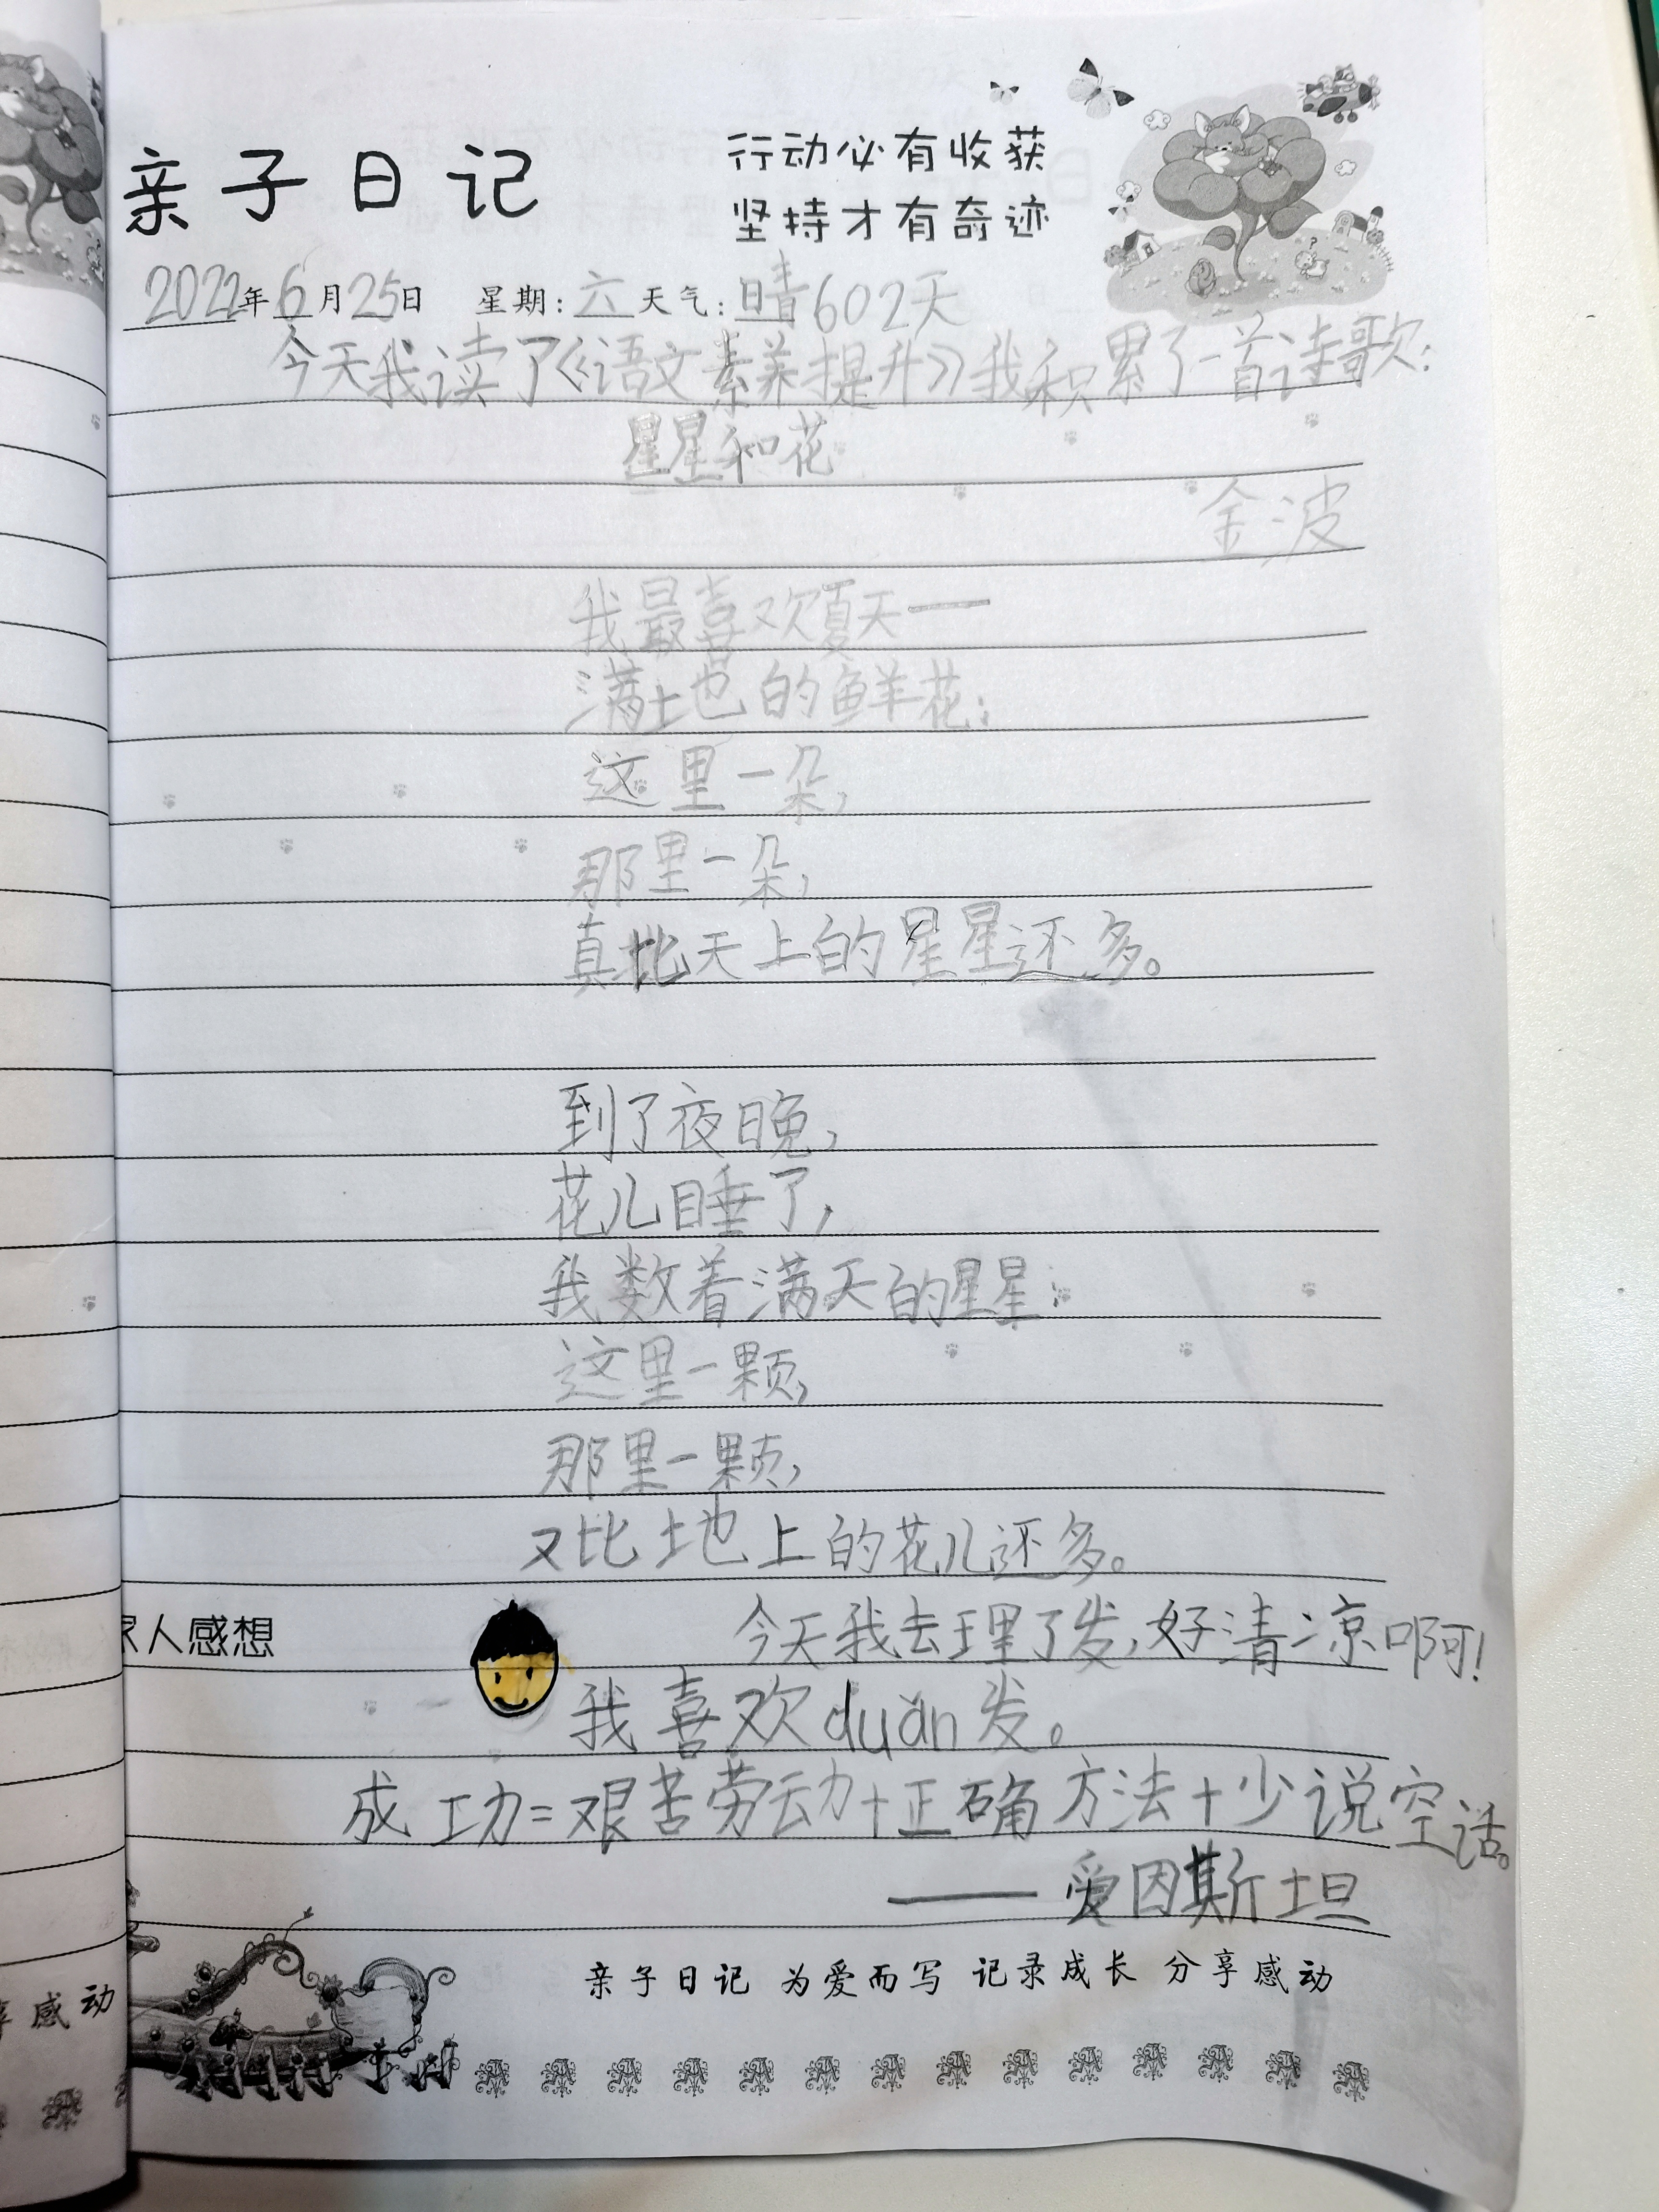 亲子日记
行动必有收获
坚持才有奇迹
2022年6月25日 星期:六天气:晴602天
今天我读了《语文素养提升》我积累了一首诗歌:
星星和花
金波
我最喜欢夏天——
满地的鲜花:
这里一朵,
那里一朵,
真比天上的星星还多。
到了夜晚,
花儿睡了,
我数着满天的星星:
这里一颗,
那里一颗,
又比地上的花儿还多。
家人感想
今天我去理了发,好清凉啊!
我喜欢duǎn发。
成功=艰苦劳动+正确方法+少说空话。
——爱因斯坦
亲子日记 为爱而写 记录成长 分享感动
享感动